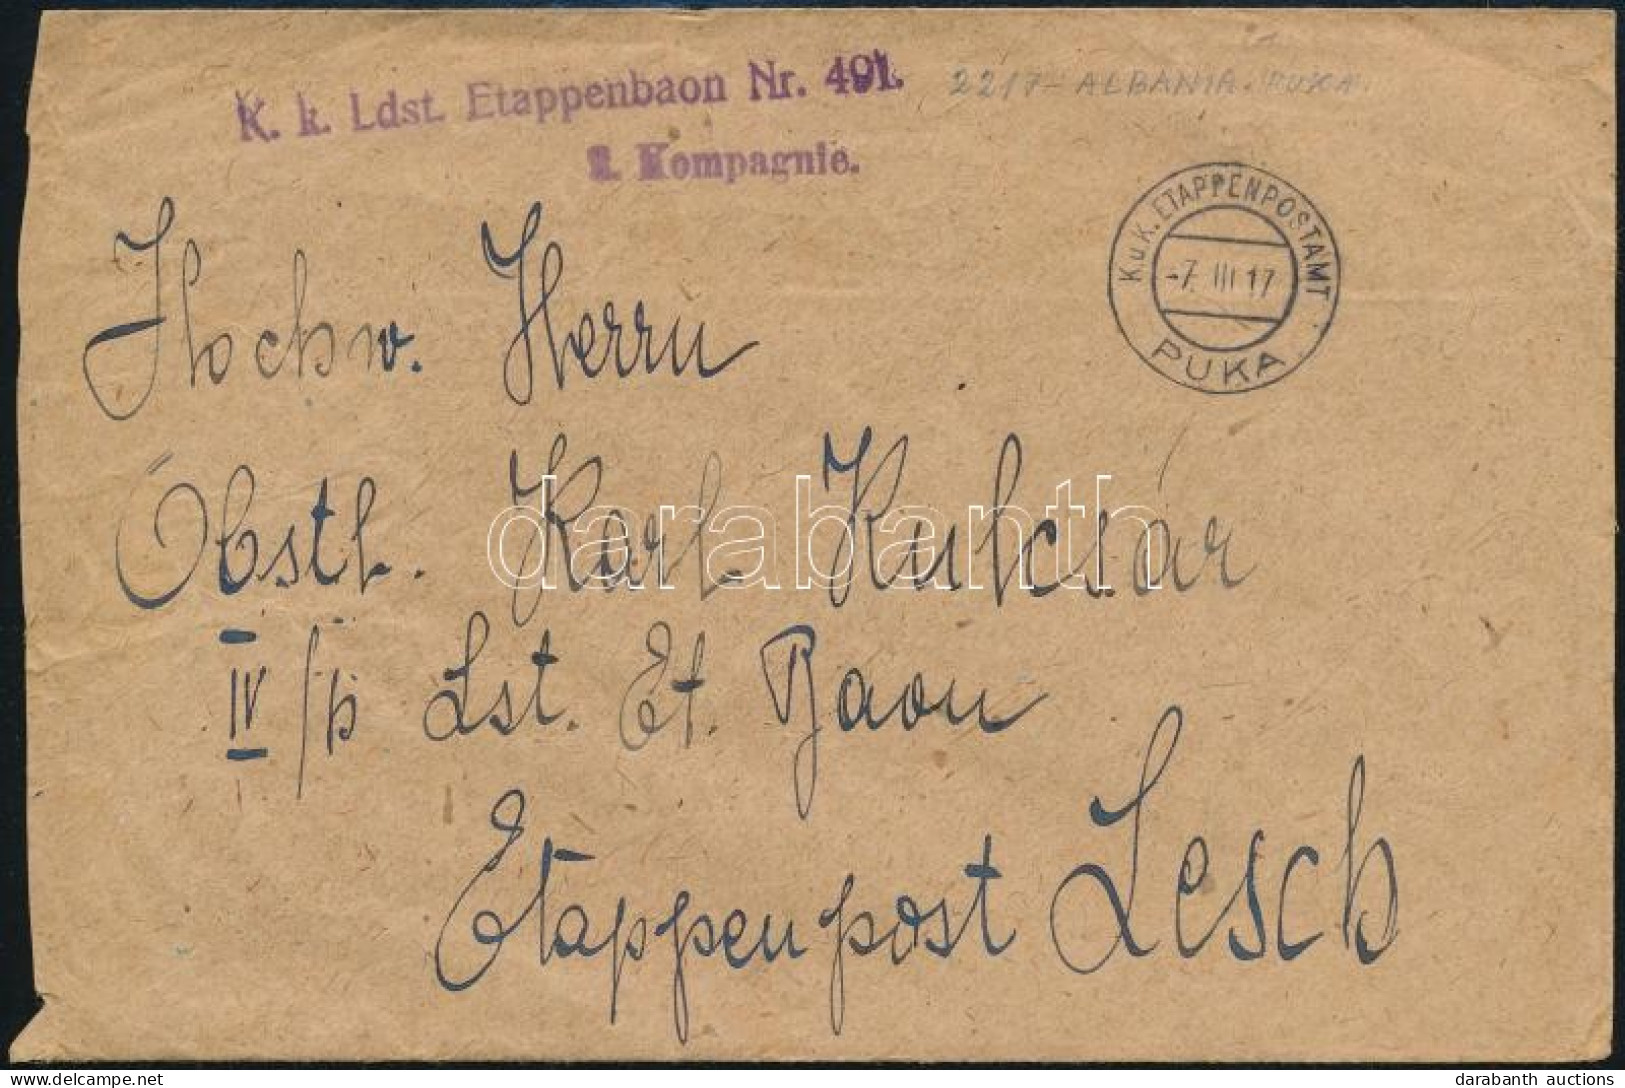 K. k. Ldst. Etappenbaon Nr. 491.
Kompagnie.
2217 - ALBANIA. PUKA.
K.u.K. ETAPPENPOSTAMT
-7. III 17
PUKA
Hochw. Herrn
Obstl. Karl Kulcsár
IV/b Lst. Et. Baon
Etappenpost Lesch
darabanth
darabanth auctions